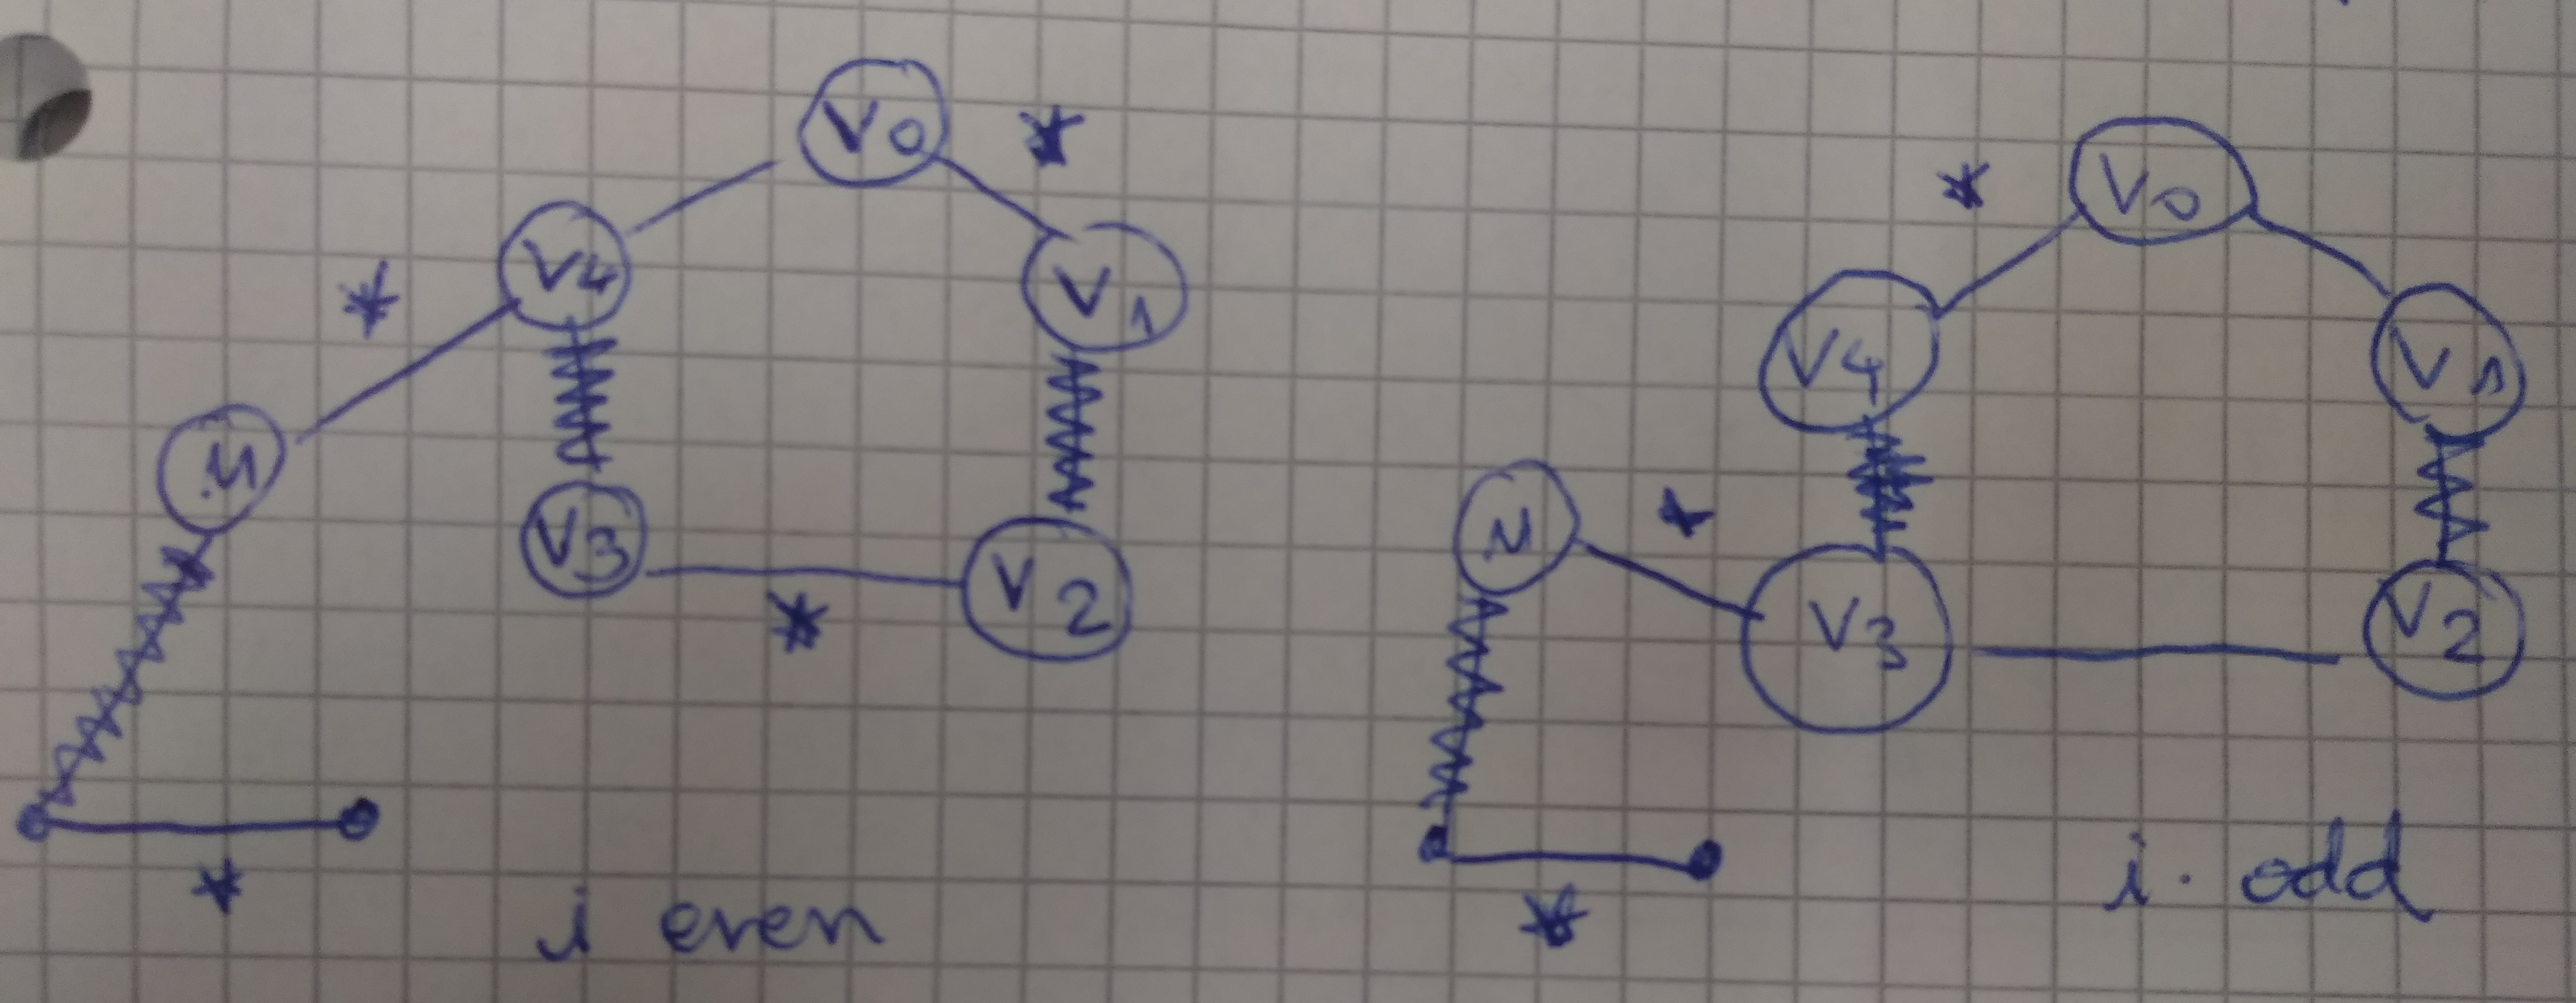 V0
*
V4
*
V1
V3
V2
*
*
i even
V0
*
V4
V1
*
V3
V2
*
i. odd